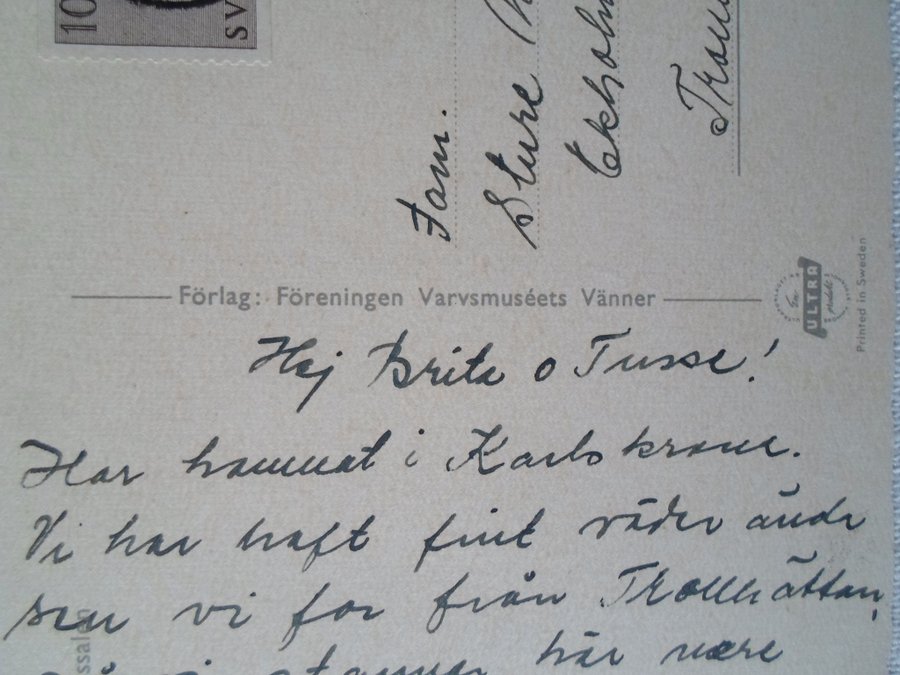 10
SV
Fam.
Sture
Ekholm
Förlag: Föreningen Varvsmuséets Vänner
ULTRA
Printed in Sweden
Hej Brita o Tusse!
Har hamnat i Karlskrona.
Vi har haft fint väder ända
sen vi for från Trollhättan,
stannar här
ssalen